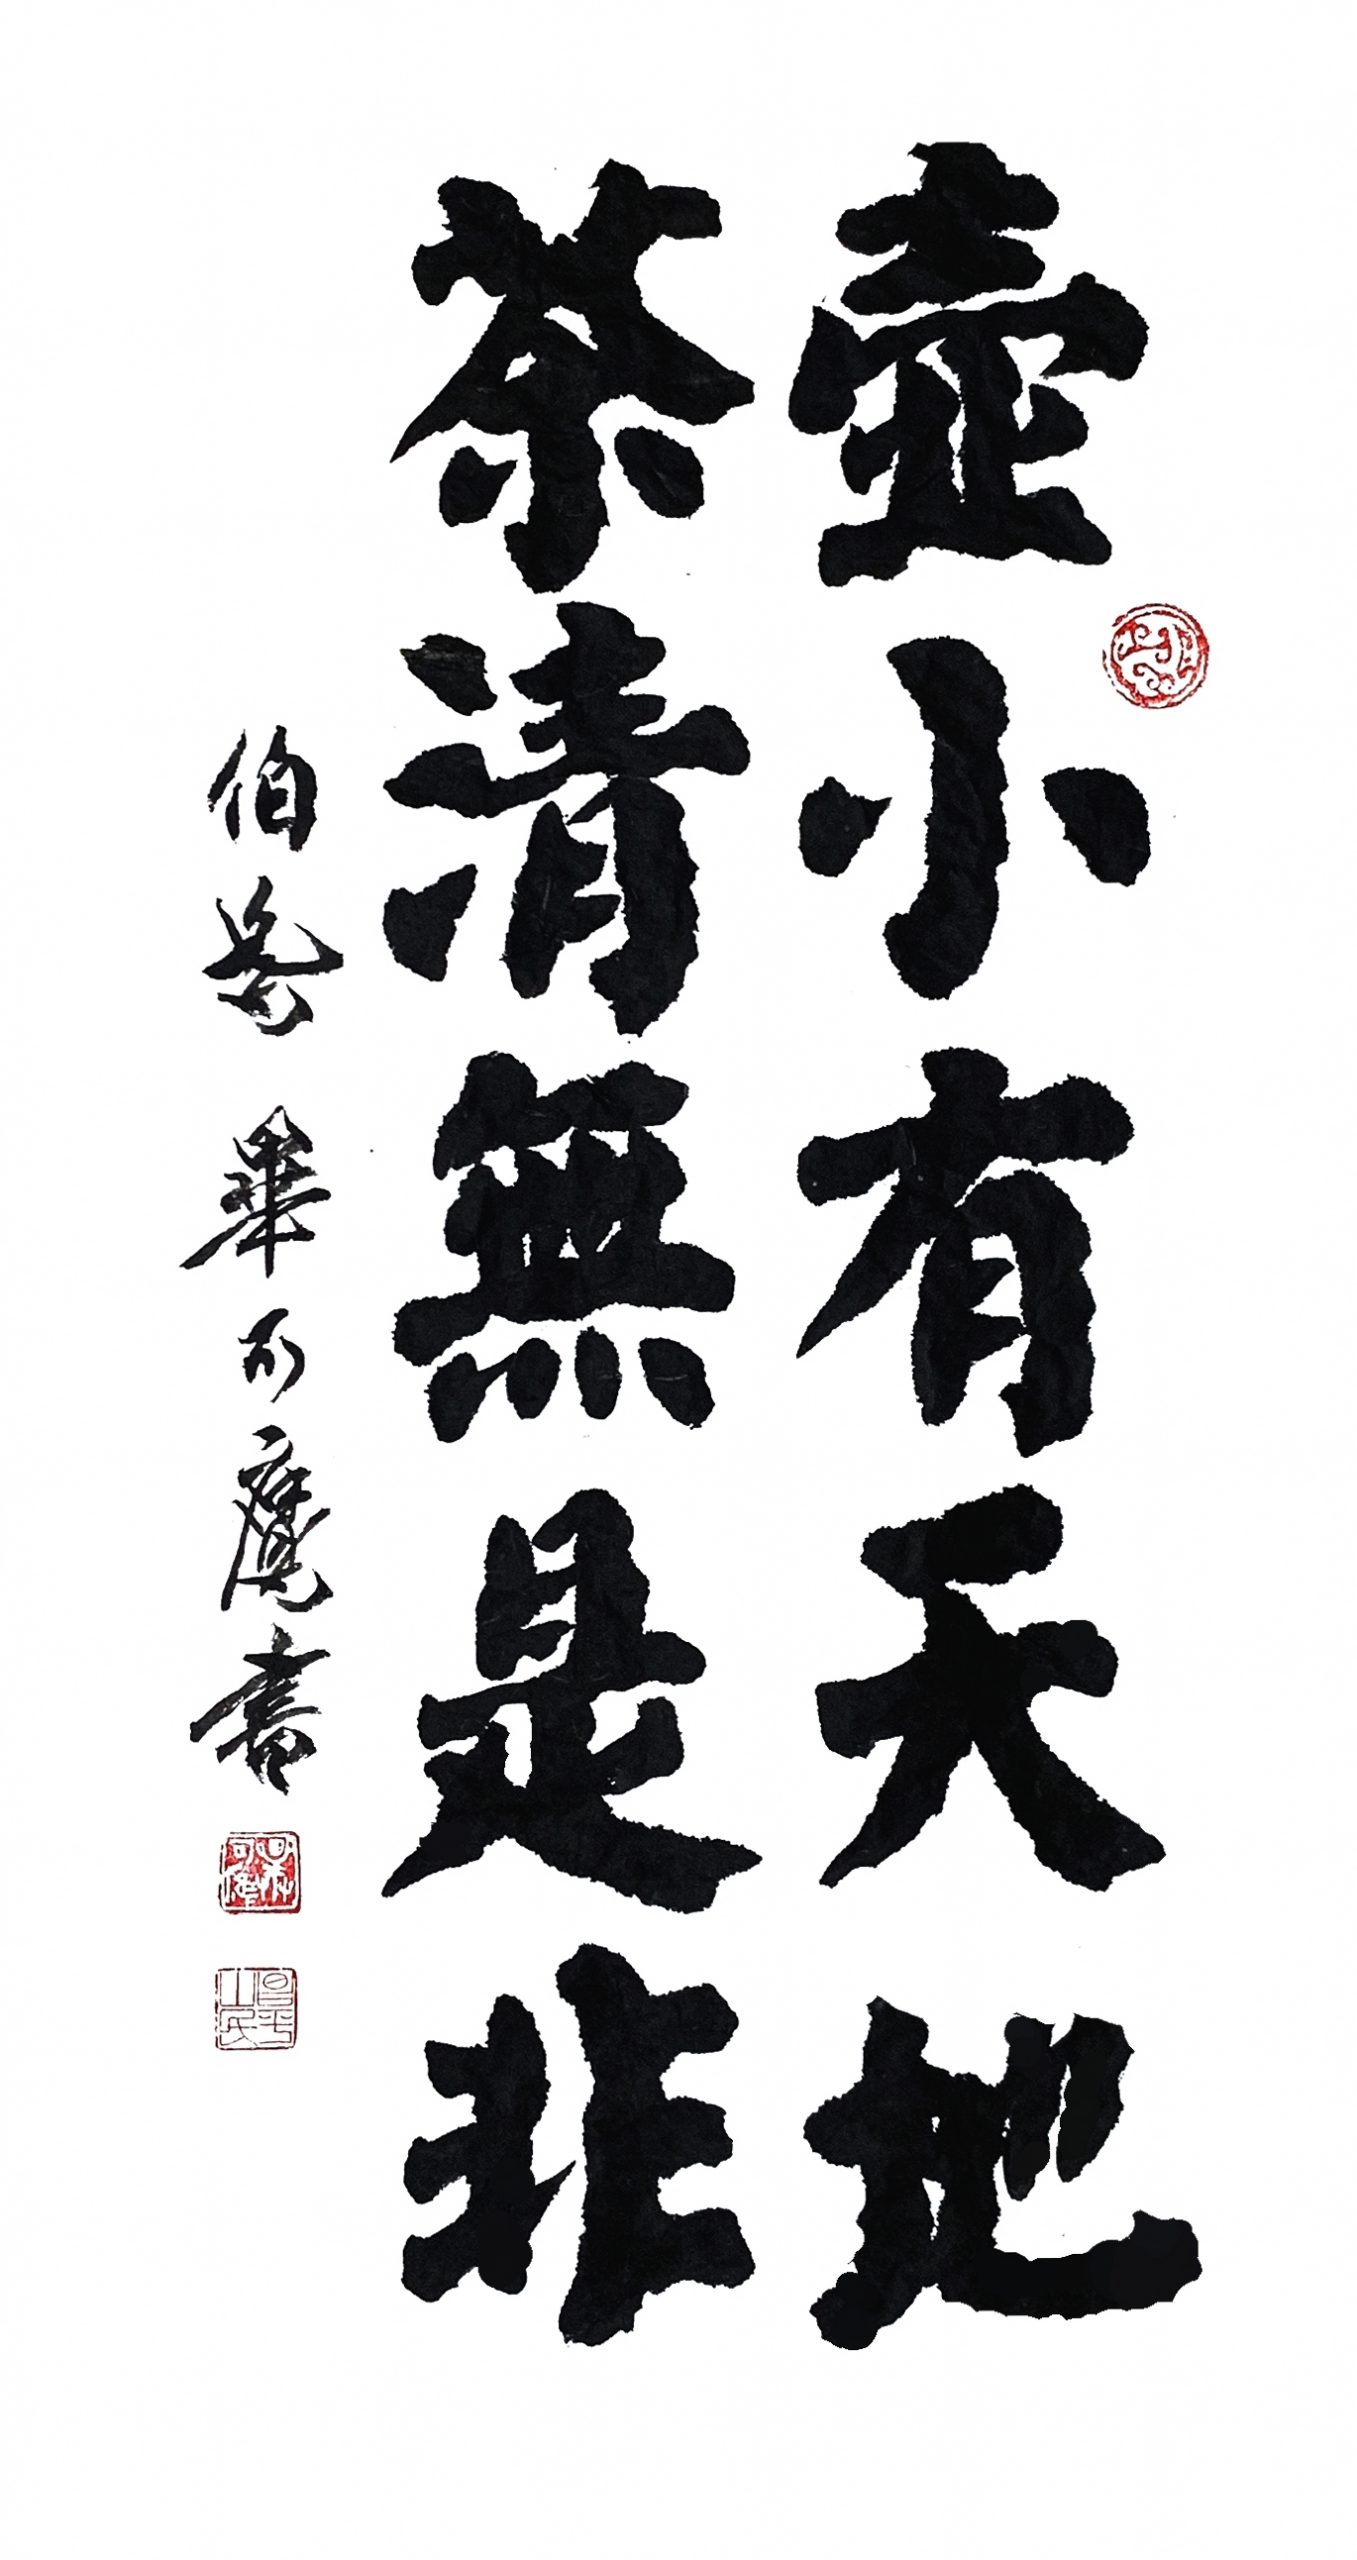 壺小有天地
茶清無是非
伯 畢可鷹書